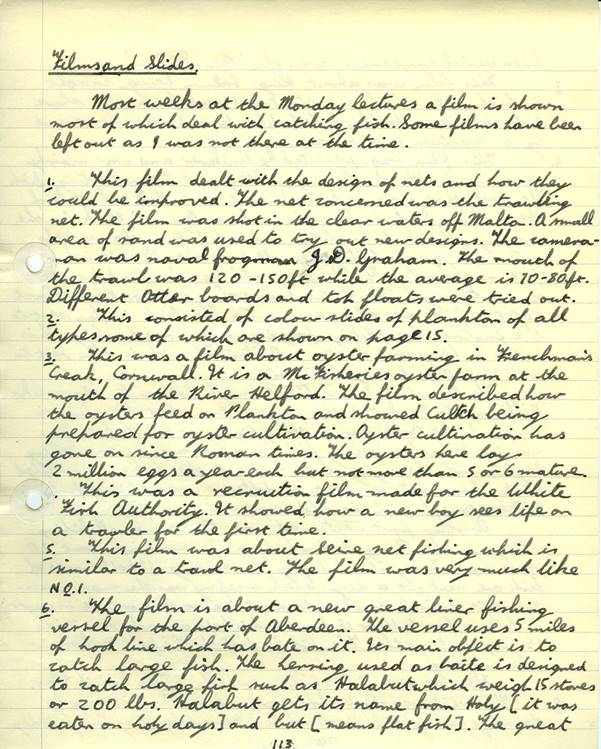 Films and Slides.
Most weeks at the Monday lectures a film is shown
most of which deal with catching fish. Some films have been
left out as I was not there at the time.
1. This film dealt with the design of nets and how they
could be improved. The net concerned was the trawling
net. The film was shot in the clear waters off Malta. A small
area of sand was used to try out new designs. The camera-
man was naval frogman J.D. Graham. The mouth of
the trawl was 120-150ft while the average is 70-80ft.
Different Otter boards and toh floats were tried out.
2. This consisted of colour slides of plankton of all
types some of which are shown on page 15.
3. This was a film about oyster farming in Frenchman's
Creak, Cornwall. It is a Mc Fisheries oyster farm at the
mouth of the River Helford. The film described how
the oysters feed on Plankton and showed Cultch being
prepared for oyster cultivation. Oyster cultivation has
gone on since Roman times. The oysters here lay
2 million eggs a year each but not more than 5 or 6 mature.
This was a recruition film made for the White
Fish Authority. It showed how a new boy sees life on
a trawler for the first time.
5. This film was about Seine net fishing which is
similar to a trawl net. The film was very much like
NO.1.
6. The film is about a new great liner fishing
vessel for the port of Aberdeen. The vessel uses 5 miles
of hook line which has bate on it. Its main object is to
catch large fish. The herring used as baite is designed
to catch large fish such as Halabut which weigh 15 stones
or 200 lbs. Halabut gets its name from Holy [it was
eaten on holy days] and but [means flat fish]. The great
113